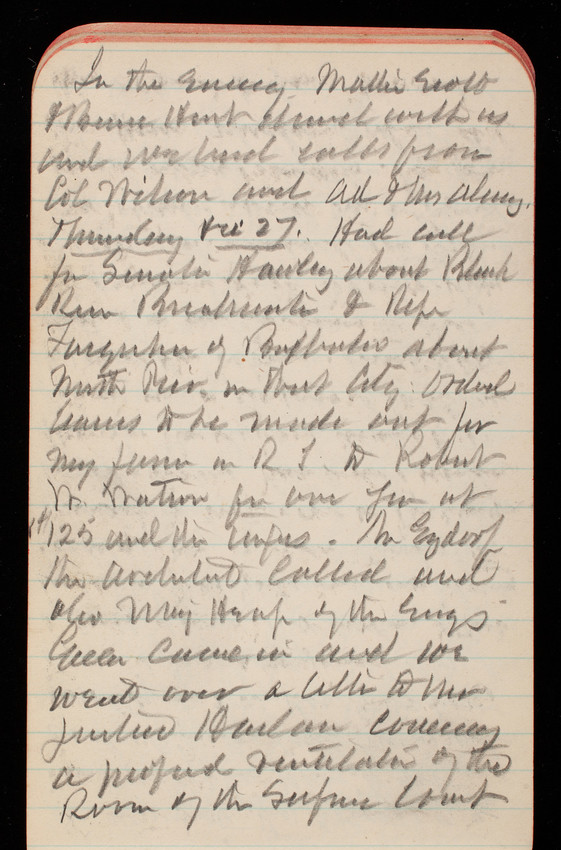 In the Evening Mollie Scott
& Bessie Hunt dined with us
and we had calls from
Col Wilson and Ad & Mrs
Thursday 27. Had call
for Senator Hawley about Black
Breakwater & Repr
Farquhar of Buffalo about
North Pier in that City. Ordered
leases to be made out for
my farm in R I to Robert
W. Watson for one year at
125 and the taxes. Mr
the architect called and
also Maj Heap of the Engs
Green came in and we
went over a letter to Mr
Justice Harlan concerning
a proposed ventilation of the
Room of the Supreme Court